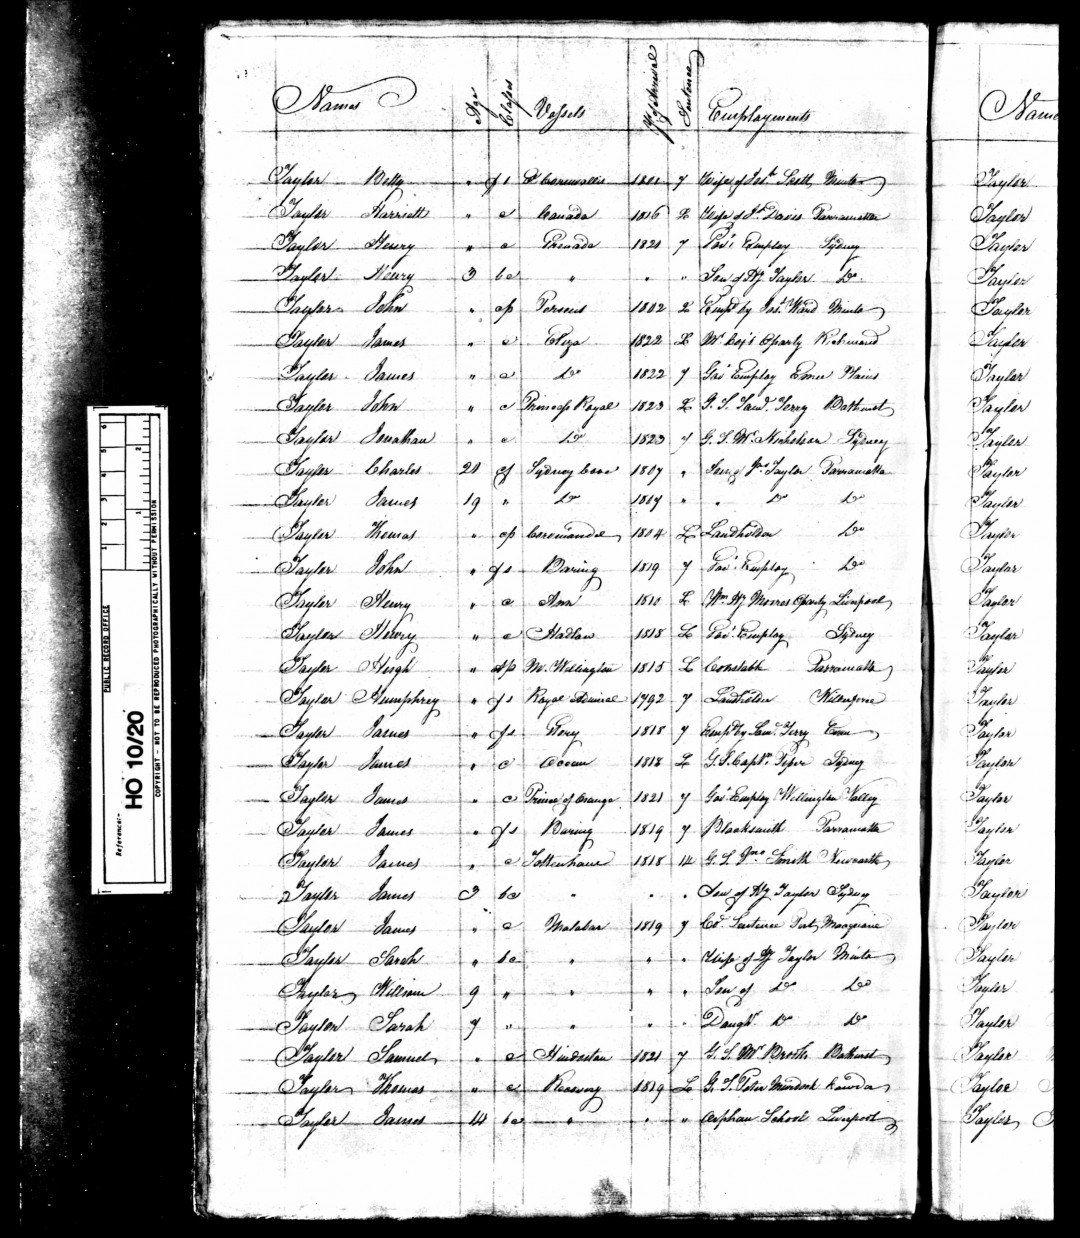 Names Age Class Vessels Yr of Arrival Sentence Employments
Taylor Betty " fs Cornwallis 1801 7 Wife of Josh Scott Minto
Taylor Harriett " c Canada 1816 L Wife of Jn Davis Parramatta
Taylor Henry " c Grenada 1821 7 Govt Employ Sydney
Taylor Henry 3 bc " " " Son of Hy Taylor Do
Taylor John " cp Perseus 1802 L Empd by Jas Ward Minto
Taylor James " c Eliza 1822 L Mr Cox's Cparty Richmond
Taylor James " c Do 1822 7 Gov Employ Emu Plains
Taylor John " c Princess Royal 1823 L G. S. Saml Terry Bathurst
Taylor Jonathan " c Do 1823 7 G. S. Mr Nicholson Sydney
Taylor Charles 20 cf Sydney Cove 1807 " Son of Taylor Parramatta
Taylor James 19 " Do 1807 " " Do Do
Taylor Thomas " cp Coromandel 1804 L Landholder Do
Taylor John " fs Baring 1819 7 Gov Employ Do
Taylor Henry " c Ann 1810 L Wm Hy Moores Cparty Liverpool
Taylor Henry " c Hadlow 1818 L Gov Employ Sydney
Taylor Hugh " cp M. Wellington 1815 L Constable Parramatta
Taylor Humphrey " fs Royal Admiral 1792 7 Landholder
Taylor James " fs Glory 1818 7 Empd by Saml Terry Emu
Taylor James " c Ocean 1818 L G. S. Captn Piper Sydney
Taylor James " c Prince of Orange 1821 7 Gov Employ Wellington Valley
Taylor James " fs Baring 1819 7 Blacksmith Parramatta
Taylor James " c Tottenham 1818 14 G. S. Jno Smith Newcastle
Taylor James 3 bc " " " Son of Hy Taylor Sydney
Taylor James " c Malabar 1819 7 Col Sentence Port Macquarie
Taylor Sarah " bc " " " Wife of Hy Taylor Minto
Taylor William 9 " " " " Son of Do Do
Taylor Sarah 7 " " " " Daught Do Do
Taylor Samuel " c Hindostan 1821 7 G. S. Mr Brooks Bathurst
Taylor Thomas " c Recovery 1819 L G. S. Peter Murdock
Taylor James 14 bc " " " Orphan School Liverpool
PUBLIC RECORD OFFICE
Reference:-
HO 10/20
COPYRIGHT - NOT TO BE REPRODUCED PHOTOGRAPHICALLY WITHOUT PERMISSION
Name
Taylor
Taylor
Taylor
Taylor
Taylor
Taylor
Taylor
Taylor
Taylor
Taylor
Taylor
Taylor
Taylor
Taylor
Taylor
Taylor
Taylor
Taylor
Taylor
Taylor
Taylor
Taylor
Taylor
Taylor
Taylor
Taylor
Taylor
Taylor
Taylor
Taylor